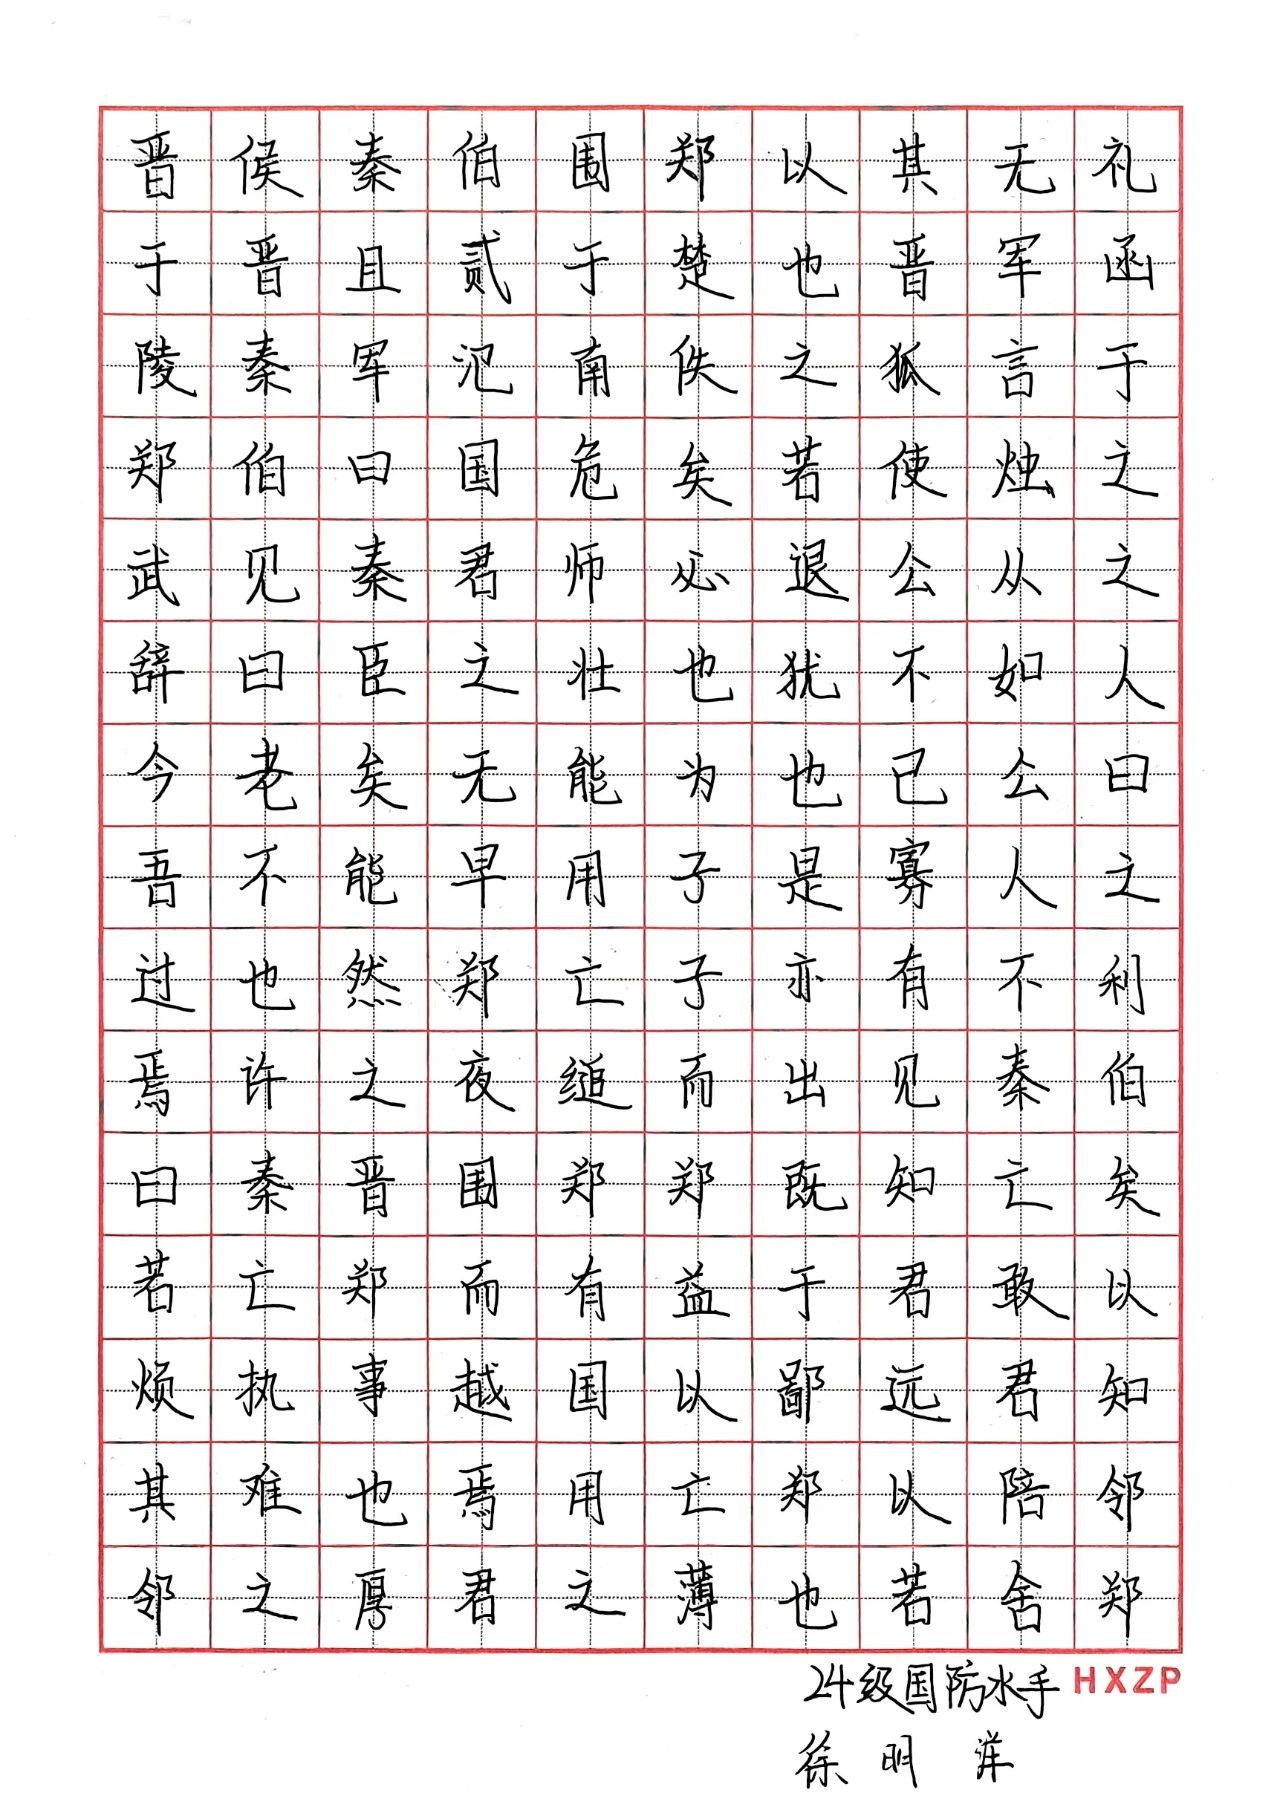 晋侯秦伯围郑以其无礼
于晋且贰于楚也晋军函
陵秦军氾南佚之狐言于
郑伯曰国危矣若使烛之
武见秦君师必退公从之
辞曰臣之壮也犹不如人
今老矣无能为也已公曰
吾不能早用子是寡人之
过也然郑亡子亦有不利
焉许之夜缒而出见秦伯
曰秦晋围郑郑既知亡矣
若亡郑而有益于君敢以
烦执事越国以鄙远君知
其难也焉用亡郑以陪邻
邻之厚君之薄也若舍郑
24级国防水手 HXZP
徐明洋